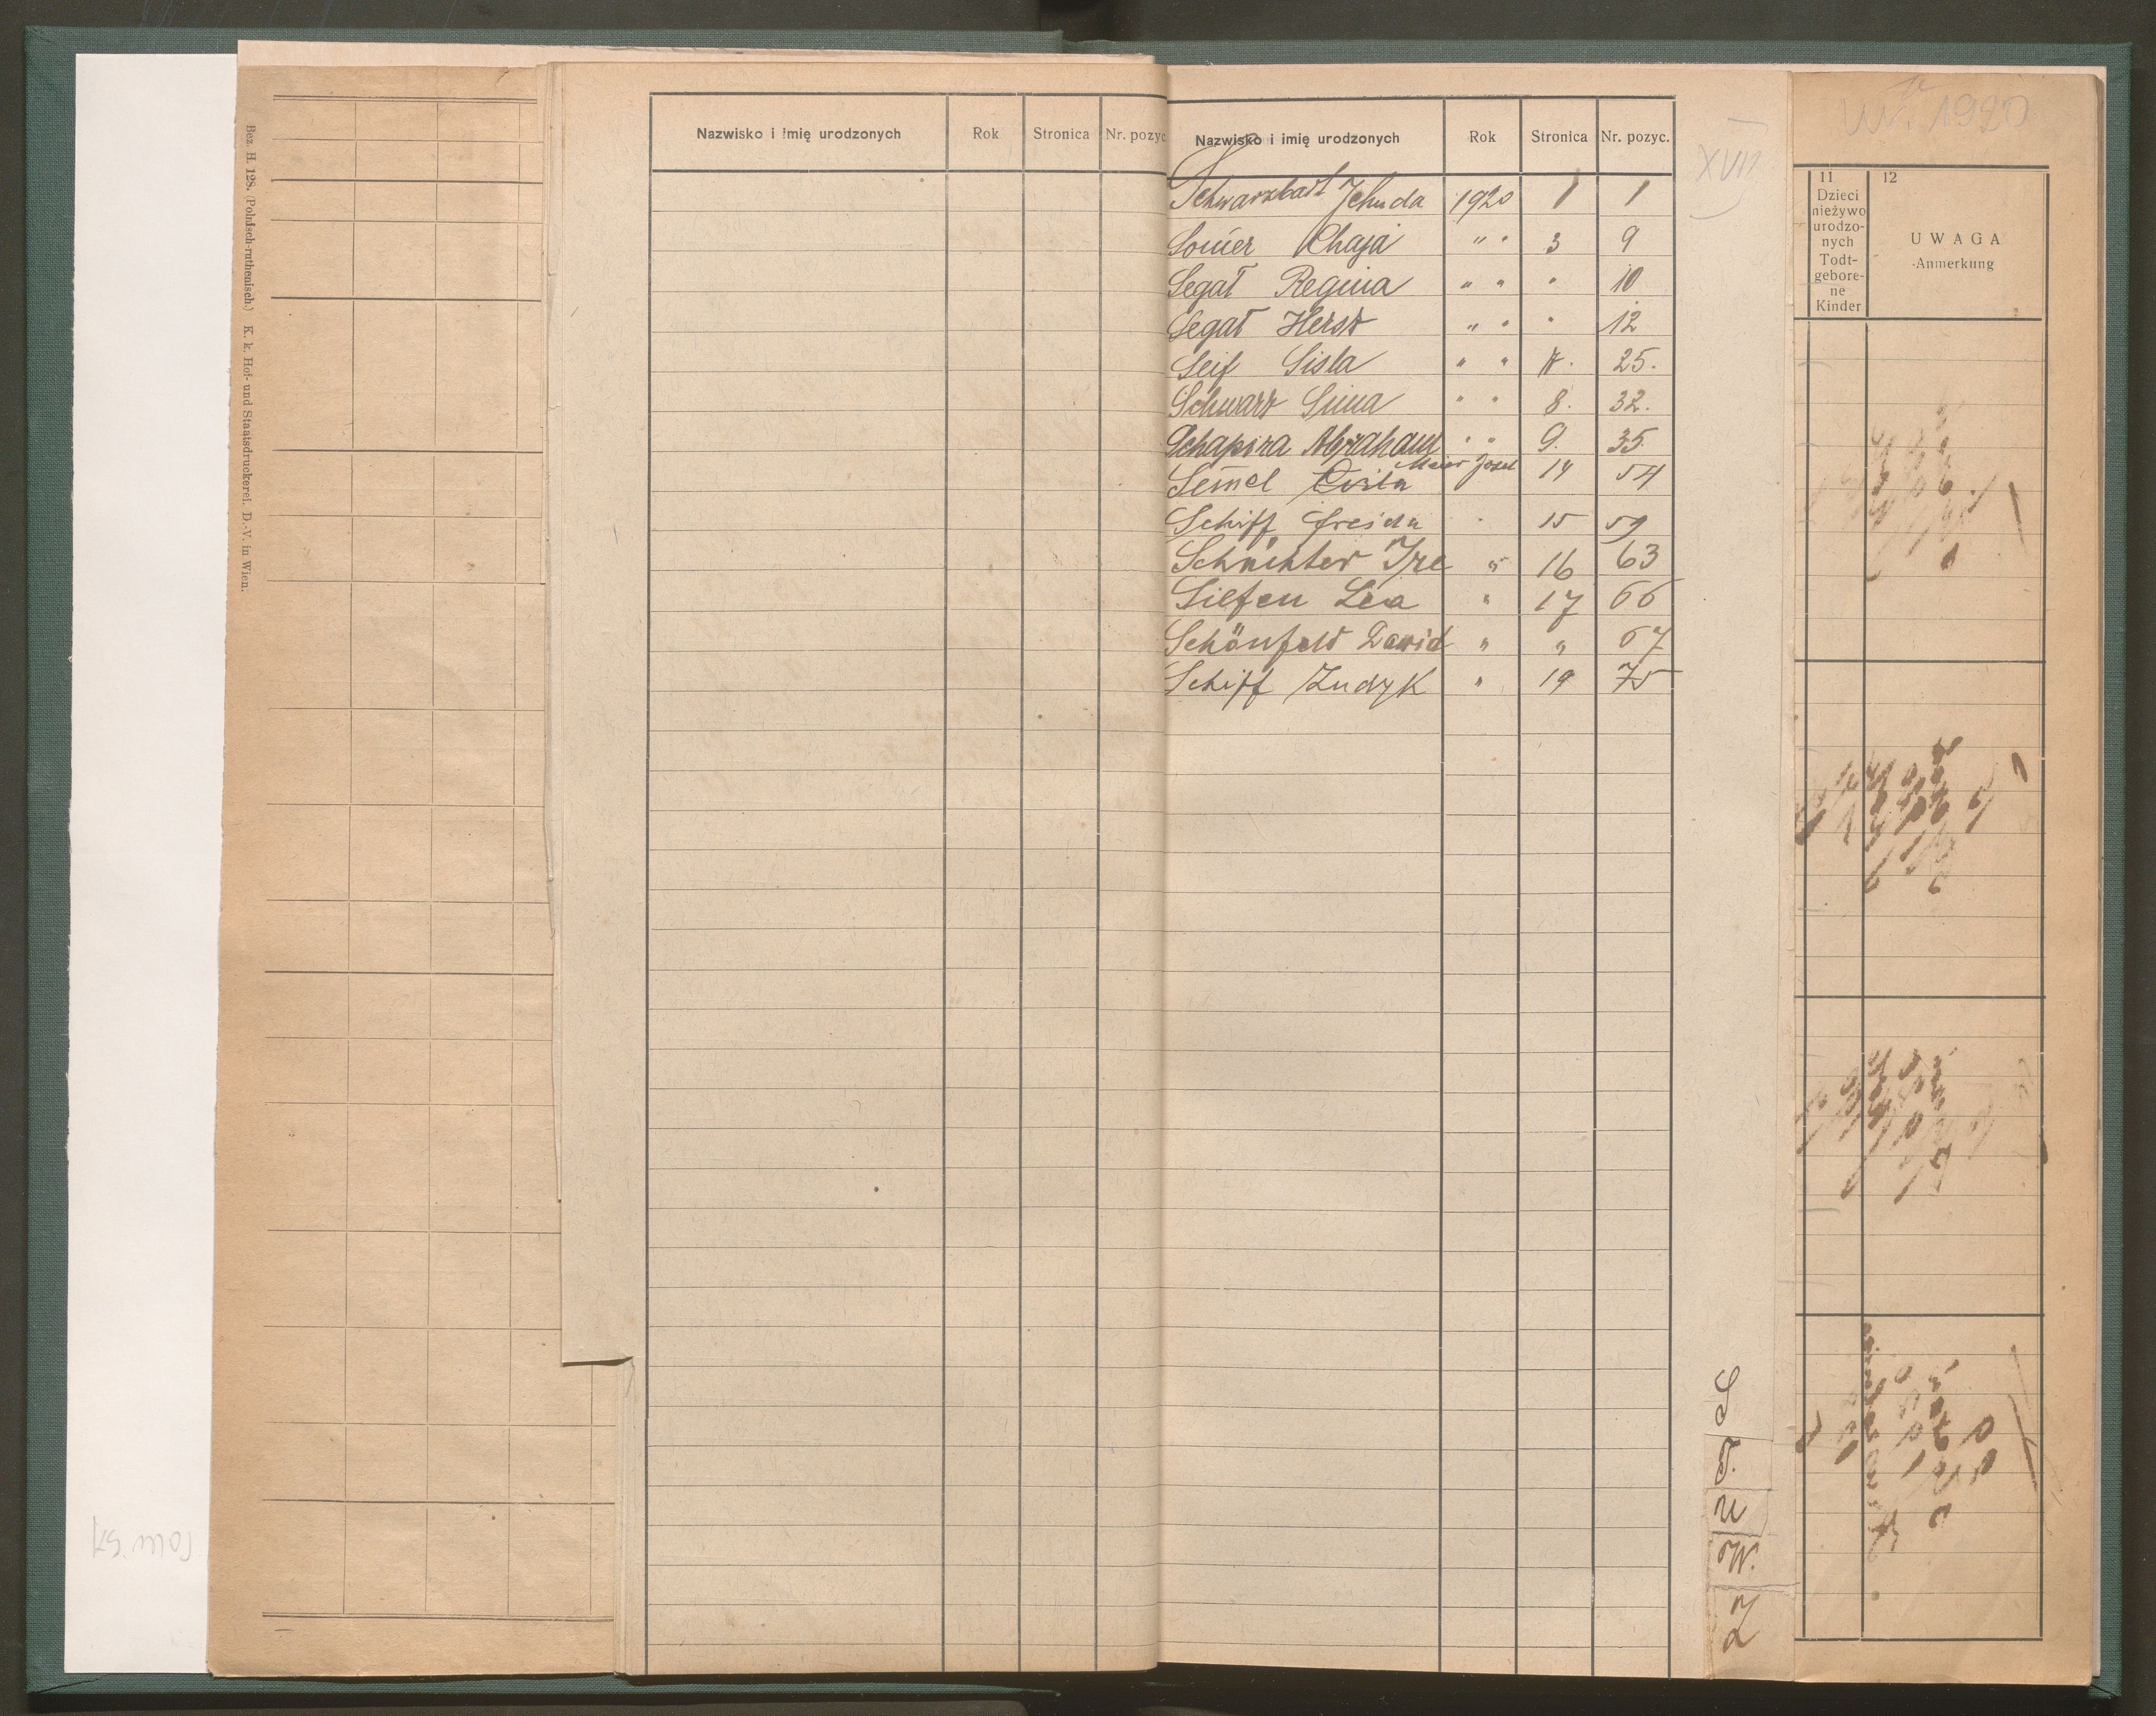 Bez. H. 128. (Polnisch-ruthenisch.) K. k. Hof- und Staatsdruckerei. D.-V. in Wien.
Nazwisko i imię urodzonych Rok Stronica Nr. pozyc
Nazwisko i imię urodzonych Rok Stronica Nr. pozyc.
Schwarzbart Jehuda 1920 1 1
Somer Chaja " " 3 9
Segał Regina " " " 10
Segał Hersz " " " 12
Seif Sisla " " 7. 25.
Schwarz Sima " " 8. 32.
Schapira Abraham " " 9. 35.
Maier Josel
Semel Cirla 14 54
Schiff Freida " 15 59
Schächter Ire " 16 63
Silfen Lea " 17 66
Schönfeld Dawid " " 67
Schiff Zudyk " 19 75
XVII
S
T.
U
W.
Z
Ur. 1920
11
Dzieci
nieżywo
urodzo-
nych
Todt-
gebore-
ne
Kinder
12
UWAGA
Anmerkung